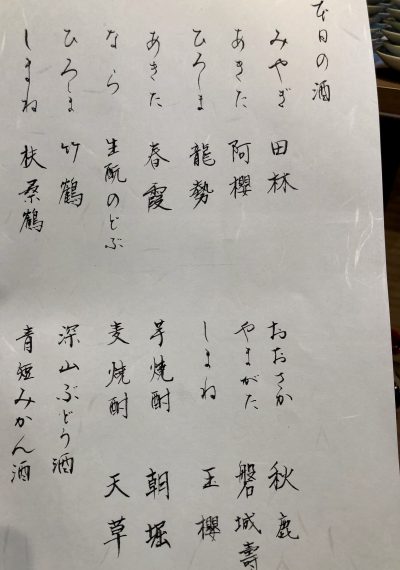 本日の酒
みやぎ 田林
あきた 阿櫻
ひろしま 龍勢
あきた 春霞
なら 生酛のどぶ
ひろしま 竹鶴
しまね 扶桑鶴
おおさか 秋鹿
やまがた 磐城壽
しまね 玉櫻
芋焼酎 朝堀
麦焼酎 天草
深山ぶどう酒
青短みかん酒